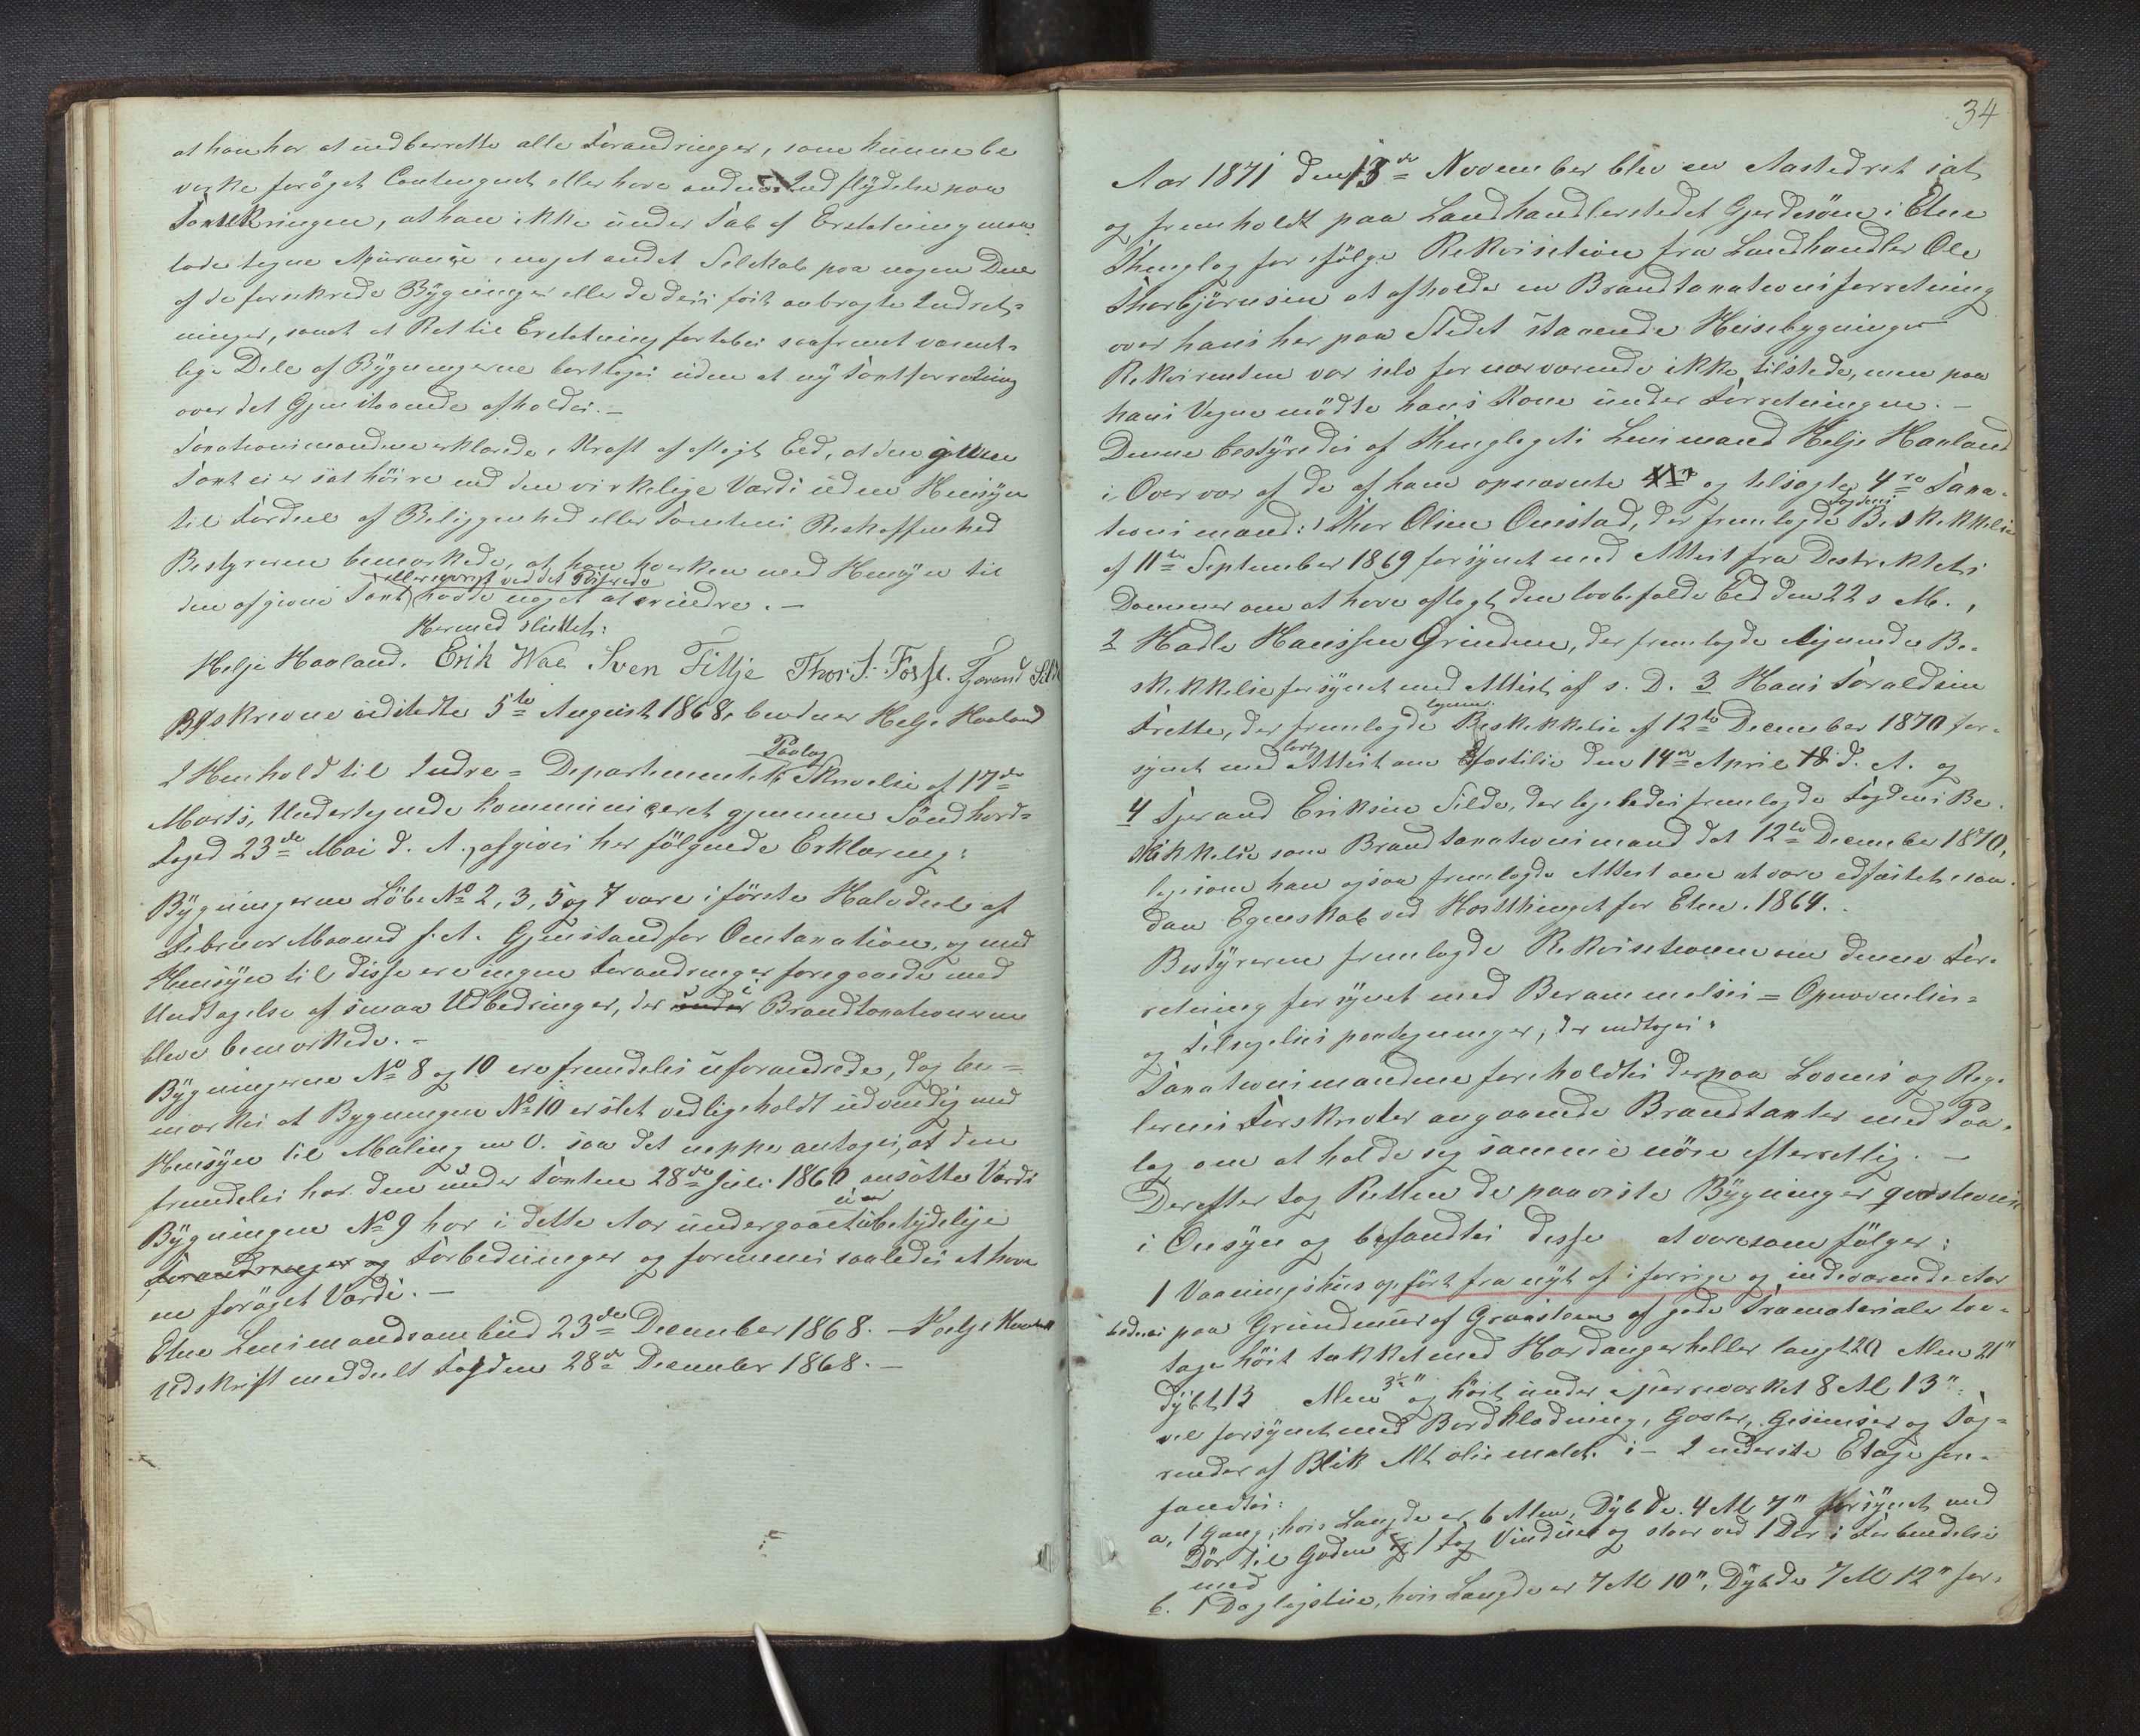 at han har at indberette alle Forandringer, som kunne be
virke forøget Contingent eller have anden Indflydelse paa
Forsikringen, at han ikke under Tab af Erstatning maa
lade tegne Assurance i noget andet Selskab paa nogen Deel
af de forsikrede Bygninger eller de deri fast anbragte Indret-
ninger, samt at Ret til Erstatning fortabes saafremt væsent-
lige Dele af Bygningerne borttages uden at ny Taxtforretning
over det Gjenstaaende afholdes.-
Taxationsmændene erklærede i Kraft af aflagt Eed, at den givne
Taxt ei er sat høiere end den virkelige Værdi uden Hensyn
til Fordeel af Beliggenhed eller Tomtens Beskaffenhed
Bestyreren bemærkede, at han hverken med Hensyn til
eller øvrigt ved det Passerede
den afgivne Taxt havde noget at erindre.-
Hermed sluttet:
Helje Haaland. Erik Wae Sven Fittje Thor S. Fosse. Tjerand Silde
Beskrevne udstedte 5te August 1868, bevidner Helje Haaland
Paalæg
I Henhold til Indre-Departementets Skrivelse af 17de
Marts, Undertegnede kommuniceret gjennem Søndhord-
Foged 23de Mai d. A., afgives her følgende Erklæring:
Bygningerne Løbe No 2, 3, 5 og 7 vare i første Halvdeel af
Februar Maaned f. A. Gjenstand for Omtaxation, og med
Hensyn til disse ere ingen Forandringer foregaaede med
Undtagelse af smaa Udbedringer, der under i Brandtaxationerne
bleve bemærkede.-
Bygningerne No 8 og 10 ere fremdeles uforandrede, dog be-
mærkes at Bygningen No 10 er slet vedligeholdt udvendig med
Hensyn til Maling m. v. saa det neppe antages, at den
fremdeles har den under Taxten 28de Juli 1860 ansatte Værdi
Bygningen No 9 har i dette Aar undergaaet ubetydelige
Forandringer og Forbedringer og formenes saaledes at have
en forøget Værdi.-
Etne Lensmandsombud 23de December 1868. - Helje Haaland
Udskrift meddeelt Fogden 28de December 1868.-
34
Aar 1871 den 13de November blev en Aastedret sat
og fremholdt paa Landhandlerstedet Gjerdesøen i Etne
Thinglag for ifølge Rekvisition fra Landhandler Ole
Thorbjørnsen at afholde en Brandtaxationsforretning
over hans her paa Stedet staaende Husebygninger
Rekvirenten var selv for nærværende ikke tilstede, men paa
hans Vegne mødte hans Kone under Forretningen.-
Denne bestyredes af Thinglagets Lensmand Helje Haaland
i Overvær af de af ham opnævnte og tilsagte 4re Taxa-
Fogdens
tionsmænd: 1 Thor Olsen Onestad, der fremlagde Beskikkelse
af 11te September 1869 forsynet med Attest fra Destriktets
Dommer om at have aflagt den lovbefalede Eed den 22 s. M.,
2 Hadle Hanssen Grinden, der fremlagde lignende Be-
skikkelse forsynet med Attest af s. D. 3 Hans Toraldsen
lignen
Frette, der fremlagde Beskikkelse af 12te December 1870 for-
synet med Attest om Edfæstelse den 14de April d. A. og
4 Tjerand Eriksen Silde, der ligeledes fremlagde Fogdens Be-
skikkelse som Brandtaxationsmand dat 12te December 1870,
ligesom han ogsaa fremlagde Attest om at være edfæstet i saa-
dan Egenskab ved Høstthinget for Etne 1869.
Bestyreren fremlagde Rekvisitionen om denne For-
retning forsynet med Berammelses- Opnævnelses-
og Tilsigelses paategninger, der indtages:
Taxationsmændene foreholdtes derpaa Lovens og Reg-
lernes Forskrifter angaaende Brandtaxter med Paa-
læg om at holde sig samme nøie efterrettelig.-
Derefter tog Retten de paaviste Bygninger qvæstionis
i Øiesyn og befandtes disse at være som følger:
1 Vaaningshus opført fra nyt af i forrige og indeværende Aar
paa Grundmuur af Graasteen af gode Træmaterialer toe-
tage høit tækket med Hardangerheller langt 20 Alen 21"
dybt 13 Alen 3½" og høit under Sperreværket 8 Al 13"
vel forsynet med Bordklædning, Gavler, Gesimser og Tag-
render af Blik Alt oliemalet. i - I underste Etage fore-
fandtes:
a, 1 Gang, hvis Længde er 6 Alen, Dybde 4 Al 7" forsynet med
Dør til Gaden 1 Fag Vinduer og staar ved 1 Dør i Forbindelse
med
b. 1 Dagligstue, hvis Længde er 7 Al 10", Dybde 7 Al 12" for-